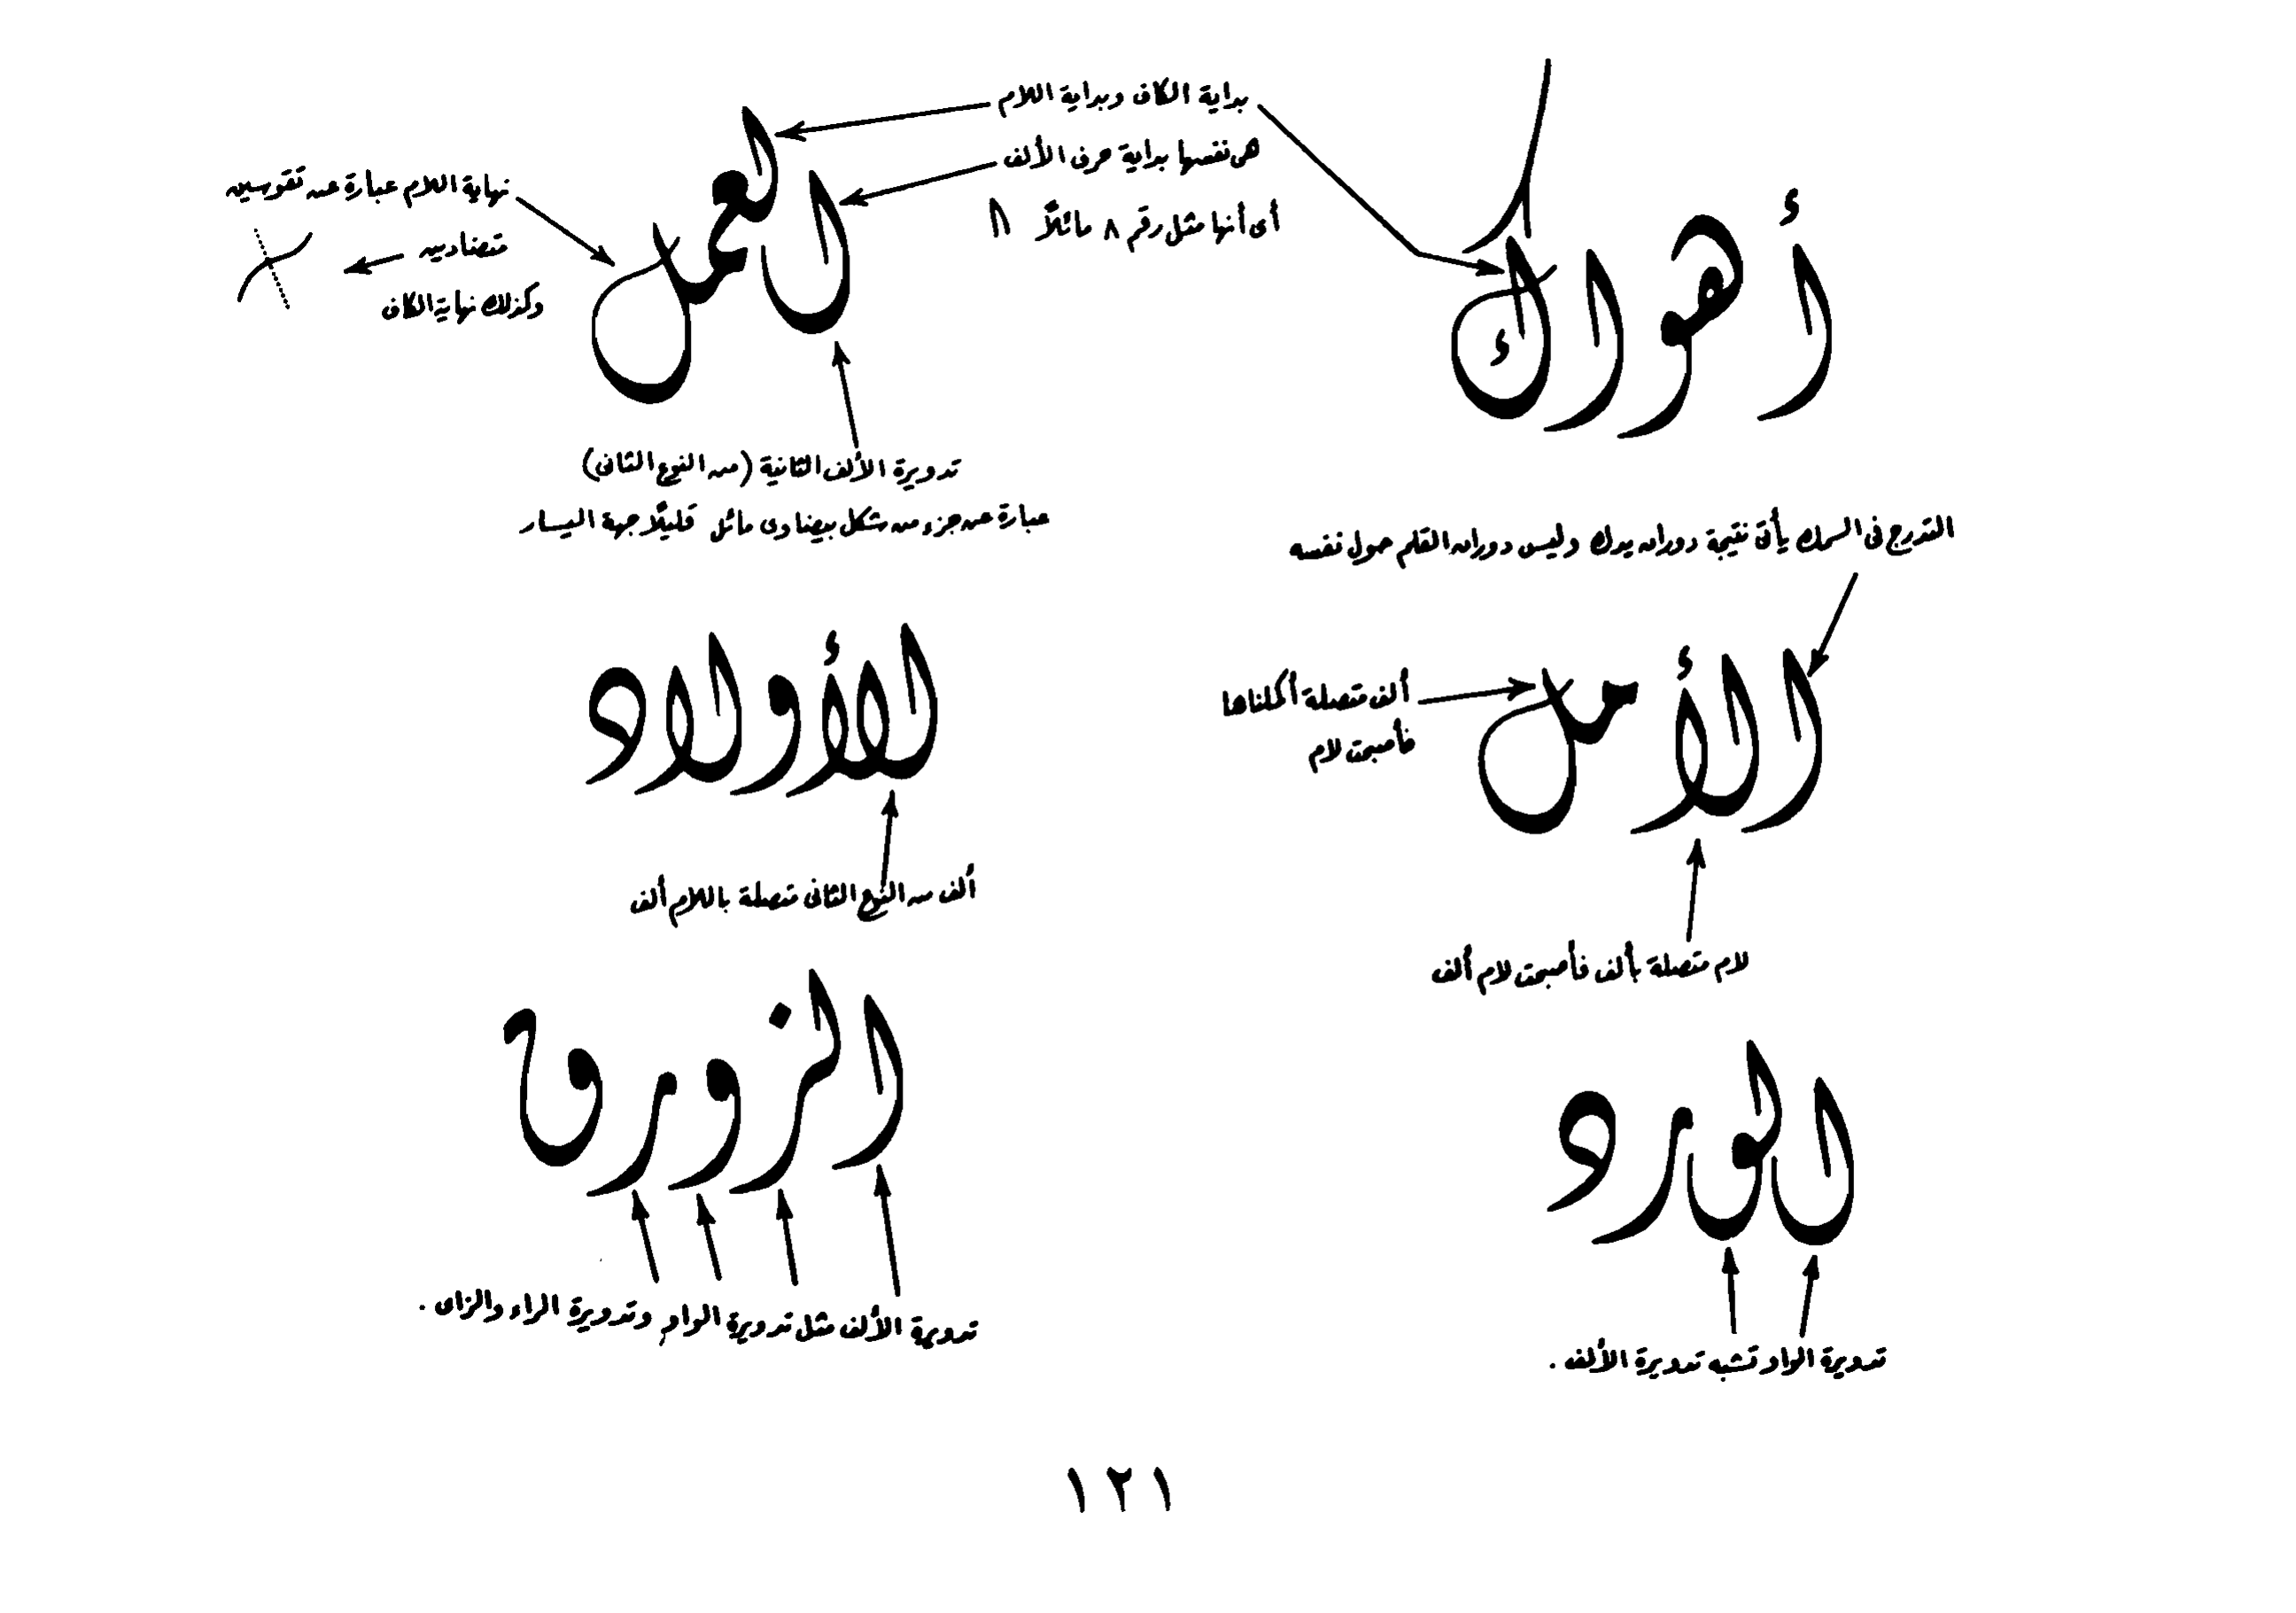 بداية الكاف وبداية اللام
هى نفسها بداية حرف الألف
أى أنها مثل رقم ٨ مائلاً ٨
أهواك
العمل
نهاية اللام عبارة عن تقوسين
متضادين
وكذلك نهاية الكاف
تدويرة الألف الثانية (من النوع الثانى)
عبارة عن جزء من شكل بيضاوى مائل قليلاً جهة اليسار
التدرج فى السمك يأتى نتيجة دوران يدك وليس دوران القلم حول نفسه
الأمل
ألف متصلة أكملناها
فأصبحت لام
لام متصلة بألف فأصبحت لام ألف
للأولاد
ألف من النوع الثانى متصلة باللام ألف
الورد
تدويرة الواو تشبه تدويرة الألف .
الزورق
تدويرة الألف مثل تدويرة الواو وتدويرة الراء والزاى .
١٢١